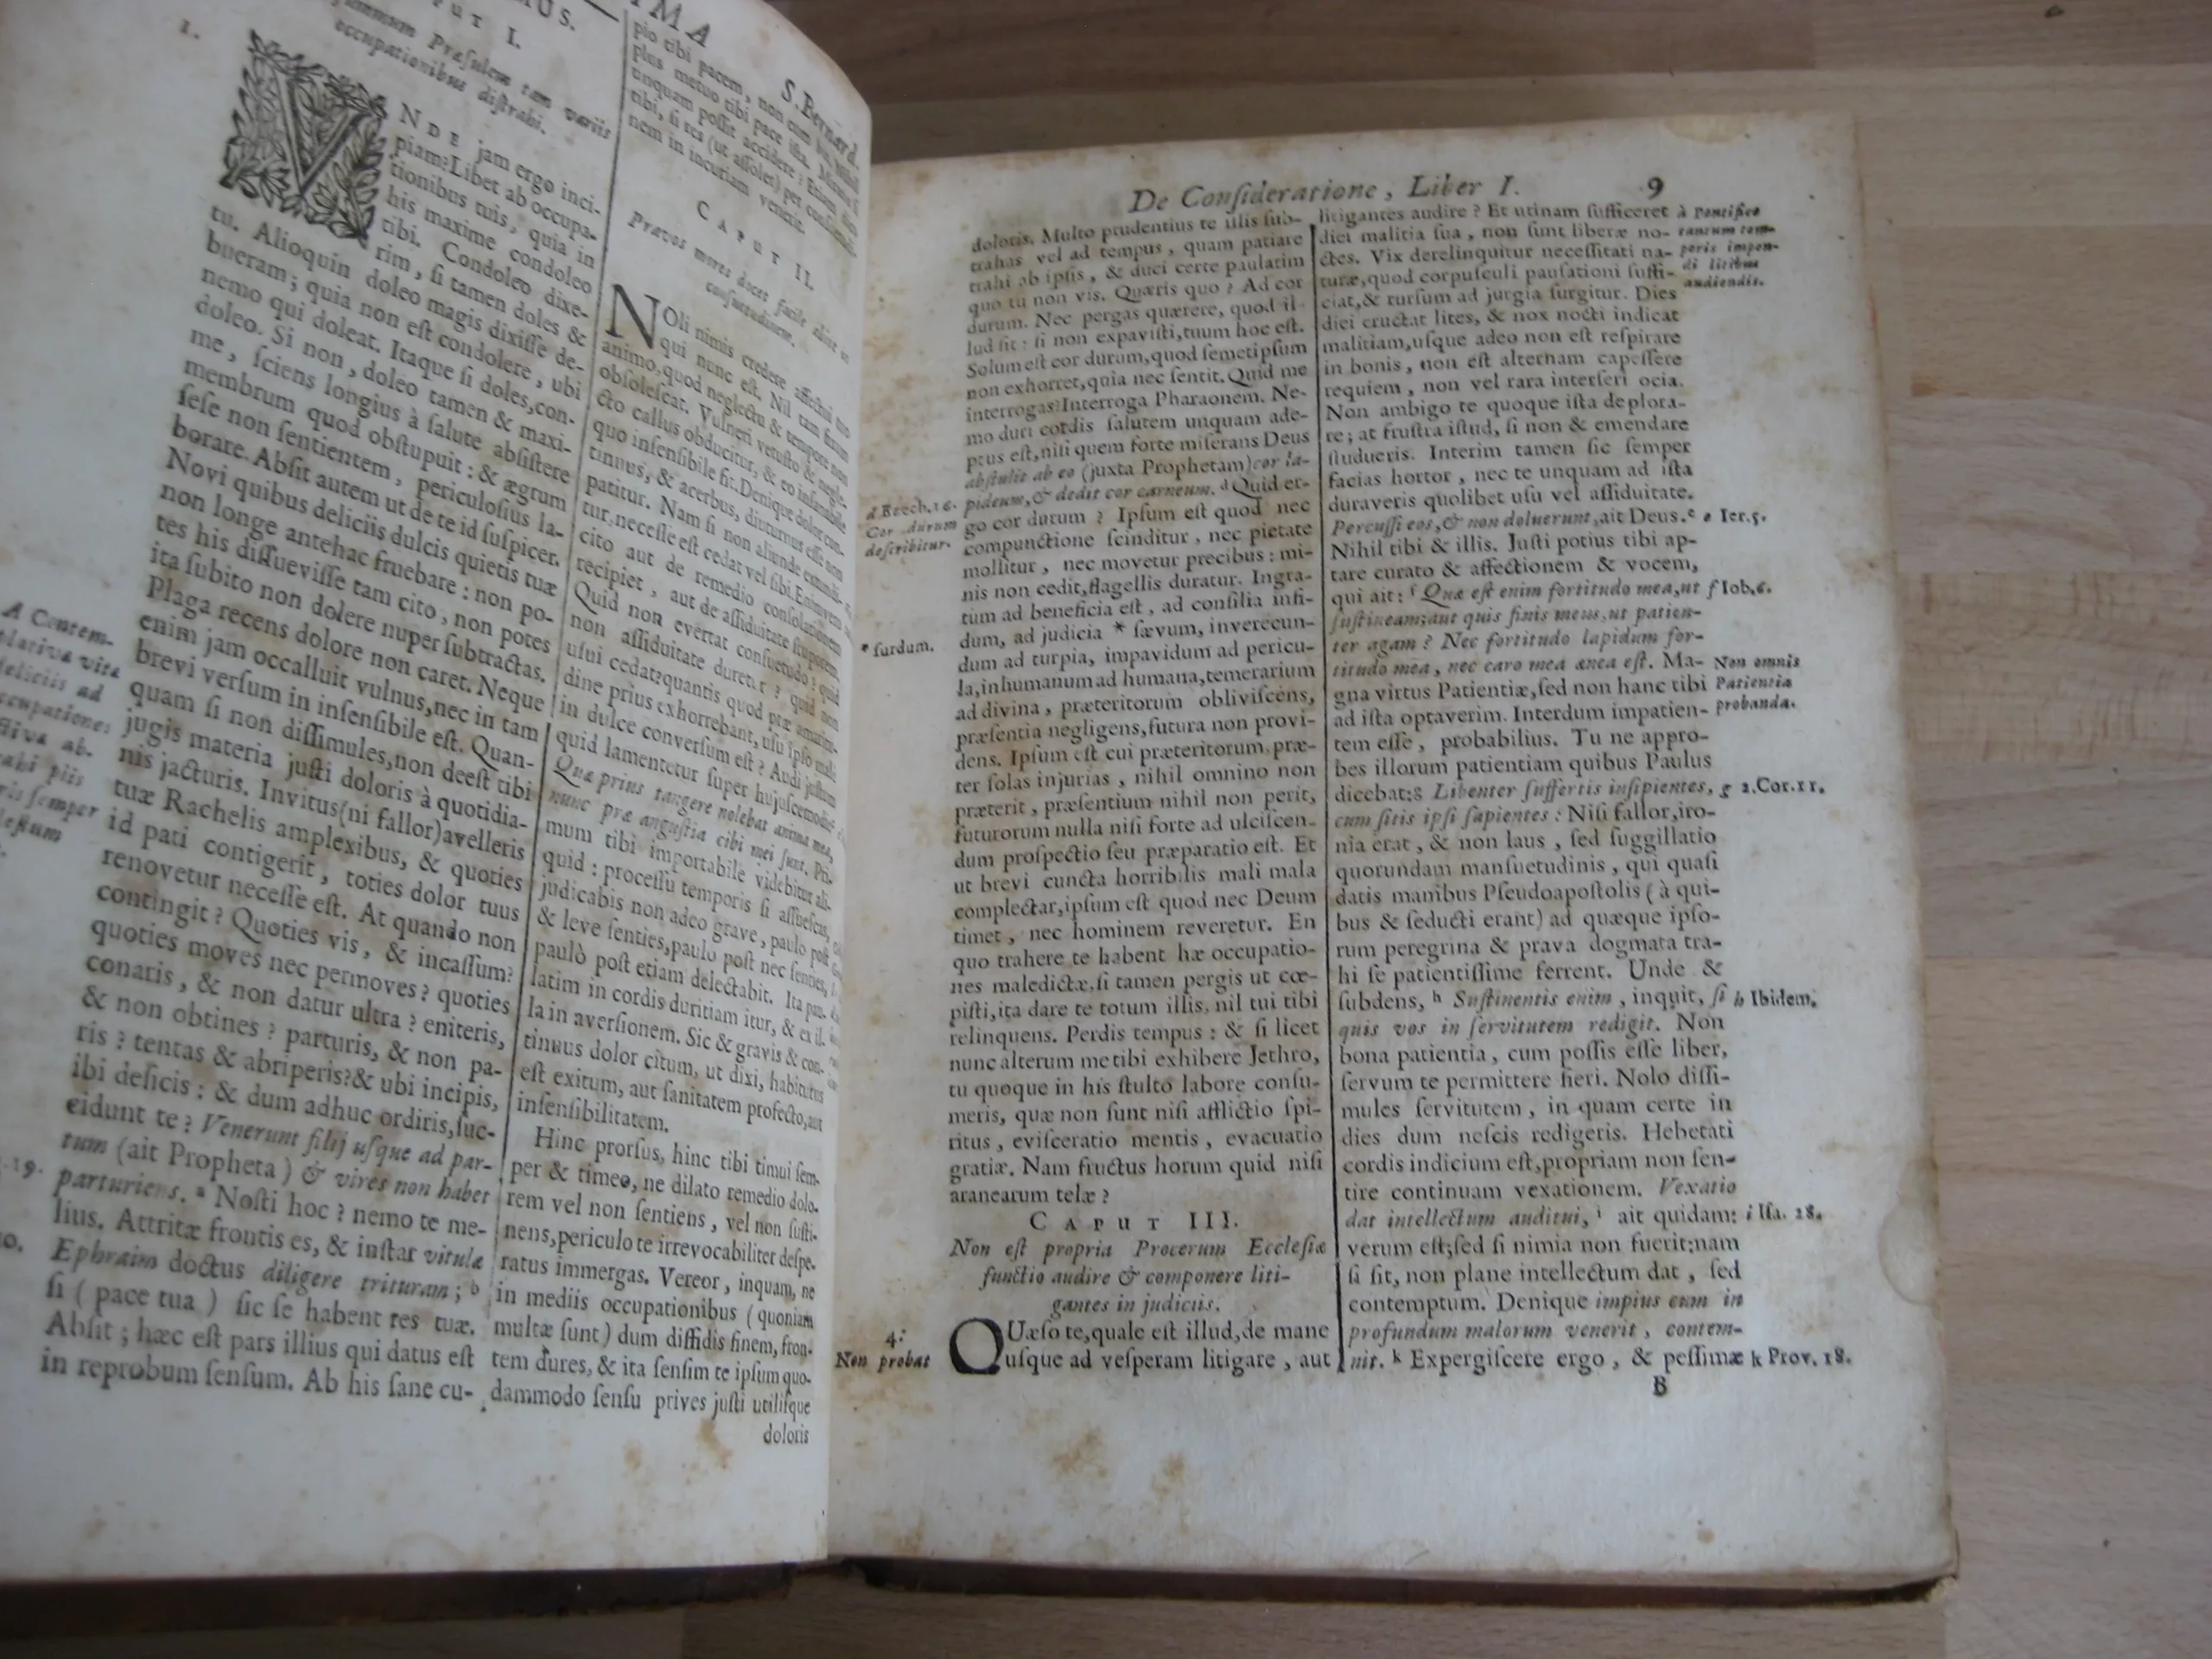 S. Bernard.
CAPUT I.
Præſulem tam variis
occupationibus diſtrahi.
I.
VNDE jam ergo inci-
piam? Libet ab occupa-
tionibus tuis, quia in
his maxime condoleo
tibi. Condoleo dixe-
rim, ſi tamen doles &
tu. Alioquin doleo magis dixiſſe de-
bueram; quia non eſt condolere, ubi
nemo qui doleat. Itaque ſi doles, con-
doleo. Si non, doleo tamen & maxi-
me, ſciens longius à ſalute abſiſtere
membrum quod obſtupuit: & ægrum
ſeſe non ſentientem, periculoſius la-
borare. Abſit autem ut de te id ſuſpicer.
Novi quibus deliciis dulcis quietis tuæ
non longe antehac fruebare: non po-
tes his diſſueviſſe tam cito, non potes
ita ſubito non dolere nuper ſubtractas.
Plaga recens dolore non caret. Neque
enim jam occalluit vulnus, nec in tam
brevi verſum in inſenſibile eſt. Quan-
quam ſi non diſſimules, non deeſt tibi
jugis materia juſti doloris à quotidia-
nis jacturis. Invitus (ni fallor) avelleris
tuæ Rachelis amplexibus, & quoties
id pati contigerit, toties dolor tuus
renovetur neceſſe eſt. At quando non
contingit? Quoties vis, & incaſſum?
quoties moves nec permoves? quoties
conaris, & non datur ultra? eniteris,
& non obtines? parturis, & non pa-
ris? tentas & abriperis? & ubi incipis,
ibi deficis: & dum adhuc ordiris, ſuc-
cidunt te? Venerunt filij uſque ad par-
tum (ait Propheta) & vires non habet
parturiens. a Noſti hoc? nemo te me-
lius. Attritæ frontis es, & inſtar vitulæ
Ephraim doctus diligere trituram; b
ſi (pace tua) ſic ſe habent res tuæ.
Abſit; hæc eſt pars illius qui datus eſt
in reprobum ſenſum. Ab his ſane cu-
A Contem-
plativa vita
deliciis ad
occupationes
19.
pio tibi pacem, non cum his. Nihil
plus metuo tibi pace iſta. Miraris ſi
unquam poſſit accidere? Etiam, dico
tibi, ſi res (ut aſſolet) per conſuetudi-
nem in incuriam venerit.
CAPUT II.
Pravos mores docet facile abire in
conſuetudinem.
NOli nimis credere affectui tuo
qui nunc eſt. Nil tam firmum
animo, quod neglectu & tempore non
obſoleſcat. Vulneri vetuſto & negle-
cto callus obducitur, & eo inſanabile
quo inſenſibile fit. Denique dolor con-
tinuus, & acerbus, diuturnus eſſe non
patitur. Nam ſi non aliunde extundi-
tur, neceſſe eſt cedat vel ſibi. Enimvero
cito aut de remedio conſolationem
recipiet, aut de aſſiduitate ſtuporem.
Quid non evertat conſuetudo? quid
non aſſiduitate duretur? quid non
uſui cedat? quantis quod præ amaritu-
dine prius exhorrebant, uſu ipſo male
in dulce converſum eſt? Audi juſtum
quid lamentetur ſuper hujuſcemodi:
Quæ prius tangere nolebat anima mea,
nunc præ anguſtia cibi mei ſunt. Pri-
mum tibi importabile videbitur ali-
quid: proceſſu temporis ſi aſſueſcas,
judicabis non adeo grave, paulo poſt
& leve ſenties, paulo poſt nec ſenties,
paulò poſt etiam delectabit. Ita pau-
latim in cordis duritiam itur, & ex il-
la in averſionem. Sic & gravis & con-
tinuus dolor citum, ut dixi, habiturus
eſt exitum, aut ſanitatem profecto, aut
inſenſibilitatem.
Hinc prorſus, hinc tibi timui ſem-
per & timeo, ne dilato remedio dolo-
rem vel non ſentiens, vel non ſuſti-
nens, periculo te irrevocabiliter deſpe-
ratus immergas. Vereor, inquam, ne
in mediis occupationibus (quoniam
multæ ſunt) dum diffidis finem, fron-
tem dures, & ita ſenſim te ipſum quo-
dammodo ſenſu prives juſti utiliſque
doloris
De Conſideratione, Liber I. 9
doloris. Multo prudentius te illis ſub-
trahas vel ad tempus, quam patiare
trahi ab ipſis, & duci certe paulatim
quo tu non vis. Quæris quo? Ad cor
durum. Nec pergas quærere, quod il-
lud ſit: ſi non expaviſti, tuum hoc eſt.
Solum eſt cor durum, quod ſemetipſum
non exhorret, quia nec ſentit. Quid me
interrogas? Interroga Pharaonem. Ne-
mo duri cordis ſalutem unquam ade-
ptus eſt, niſi quem forte miſerans Deus
abſtulit ab eo (juxta Prophetam) cor la-
pideum, & dedit cor carneum. d Quid er-
go cor durum? Ipſum eſt quod nec
compunctione ſcinditur, nec pietate
mollitur, nec movetur precibus: mi-
nis non cedit, flagellis duratur. Ingra-
tum ad beneficia eſt, ad conſilia infi-
dum, ad judicia * ſævum, inverecun-
dum ad turpia, impavidum ad pericu-
la, inhumanum ad humana, temerarium
ad divina, præteritorum obliviſcens,
præſentia negligens, futura non provi-
dens. Ipſum eſt cui præteritorum præ-
ter ſolas injurias, nihil omnino non
præterit, præſentium nihil non perit,
futurorum nulla niſi forte ad ulciſcen-
dum proſpectio ſeu præparatio eſt. Et
ut brevi cuncta horribilis mali mala
complectar, ipſum eſt quod nec Deum
timet, nec hominem reveretur. En
quo trahere te habent hæ occupatio-
nes maledictæ, ſi tamen pergis ut cœ-
piſti, ita dare te totum illis, nil tui tibi
relinquens. Perdis tempus: & ſi licet
nunc alterum me tibi exhibere Jethro,
tu quoque in his ſtulto labore conſu-
meris, quæ non ſunt niſi afflictio ſpi-
ritus, eviſceratio mentis, evacuatio
gratiæ. Nam fructus horum quid niſi
aranearum telæ?
CAPUT III.
Non eſt propria Procerum Eccleſiæ
functio audire & componere liti-
gantes in judiciis.
QUæſo te, quale eſt illud, de mane
uſque ad veſperam litigare, aut
d Ezech. 16.
Cor durum
deſcribitur.
* ſurdum.
4.
Non probat
litigantes audire? Et utinam ſufficeret
diei malitia ſua, non ſunt liberæ no-
ctes. Vix derelinquitur neceſſitati na-
turæ, quod corpuſculi pauſationi ſuffi-
ciat, & rurſum ad jurgia ſurgitur. Dies
diei eructat lites, & nox nocti indicat
malitiam, uſque adeo non eſt reſpirare
in bonis, non eſt alternam capeſſere
requiem, non vel rara interſeri ocia.
Non ambigo te quoque iſta deplora-
re; at fruſtra iſtud, ſi non & emendare
ſtudueris. Interim tamen ſic ſemper
facias hortor, nec te unquam ad iſta
duraveris quolibet uſu vel aſſiduitate.
Percuſſi eos, & non doluerunt, ait Deus. e
Nihil tibi & illis. Juſti potius tibi ap-
tare curato & affectionem & vocem,
qui ait: f Quæ eſt enim fortitudo mea, ut
ſuſtineam; aut quis finis meus, ut patien-
ter agam? Nec fortitudo lapidum for-
titudo mea, nec caro mea ænea eſt. Ma-
gna virtus Patientiæ, ſed non hanc tibi
ad iſta optaverim. Interdum impatien-
tem eſſe, probabilius. Tu ne appro-
bes illorum patientiam quibus Paulus
dicebat: g Libenter ſuffertis inſipientes,
cum ſitis ipſi ſapientes: Niſi fallor, iro-
nia erat, & non laus, ſed ſuggillatio
quorundam manſuetudinis, qui quaſi
datis manibus Pſeudoapoſtolis (à qui-
bus & ſeducti erant) ad quæque ipſo-
rum peregrina & prava dogmata tra-
hi ſe patientiſſime ferrent. Unde &
ſubdens, h Suſtinentis enim, inquit, ſi
quis vos in ſervitutem redigit. Non
bona patientia, cum poſſis eſſe liber,
ſervum te permittere fieri. Nolo diſſi-
mules ſervitutem, in quam certe in
dies dum neſcis redigeris. Hebetati
cordis indicium eſt, propriam non ſen-
tire continuam vexationem. Vexatio
dat intellectum auditui, i ait quidam:
verum eſt; ſed ſi nimia non fuerit; nam
ſi ſit, non plane intellectum dat, ſed
contemptum. Denique impius cum in
profundum malorum venerit, contem-
nit. k Expergiſcere ergo, & peſſimæ
B
à Pontifice
tantum tem-
poris impen-
di litibus
audiendis.
e Ier. 5.
f Iob. 6.
Non omnis
Patientia
probanda.
g 2. Cor. 11.
h Ibidem.
i Iſa. 28.
k Prov. 18.